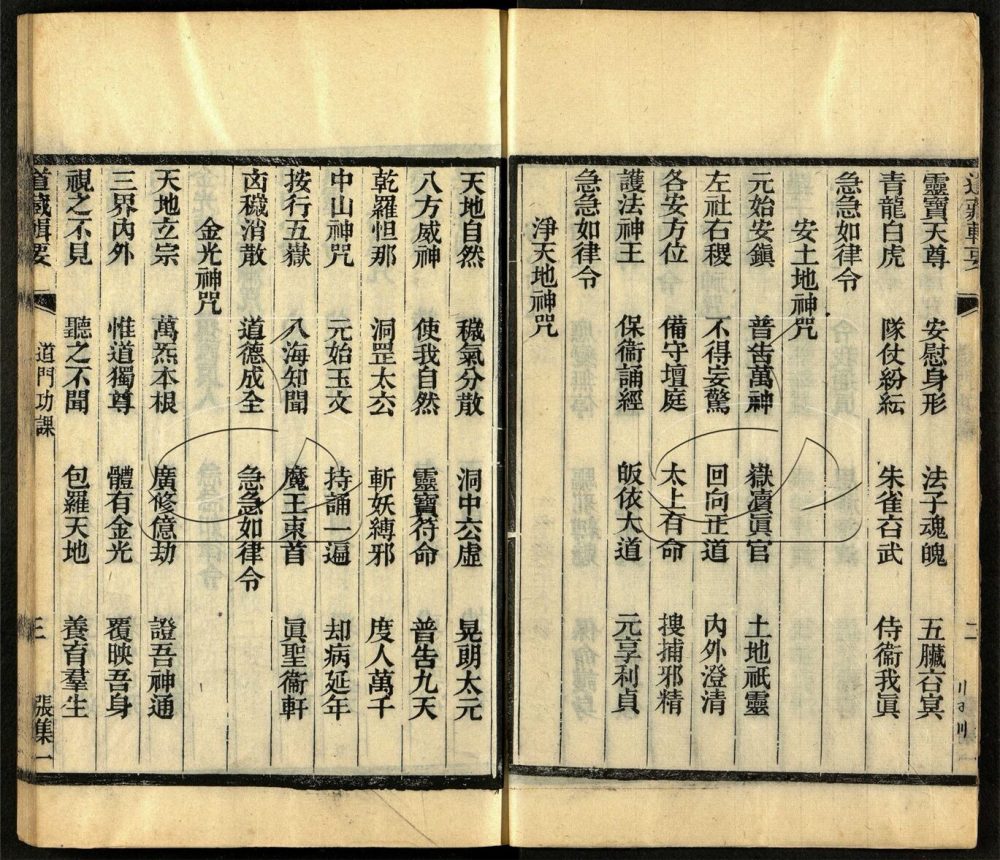 靈寶天尊 安慰身形 法子魂魄 五臟𤣥冥
青龍白虎 隊仗紛紜 朱雀𤣥武 侍衞我眞
急急如律令
安土地神咒
元始安鎭 普告萬神 嶽瀆眞官 土地祇靈
左社右稷 不得妄驚 回向正道 內外澄清
各安方位 備守壇庭 太上有命 搜捕邪精
護法神王 保衞誦經 皈依大道 元亨利貞
急急如律令
淨天地神咒
天地自然 穢氣分散 洞中𤣥虛 晃朗太元
八方威神 使我自然 靈寶符命 普告九天
乾羅怛那 洞罡太𤣥 斬妖縛邪 度人萬千
中山神咒 元始玉文 持誦一遍 却病延年
按行五嶽 八海知聞 魔王束首 眞聖衞軒
凶穢消散 道德成全 急急如律令
金光神咒
天地立宗 萬炁本根 廣修億劫 證吾神通
三界內外 惟道獨尊 體有金光 覆映吾身
視之不見 聽之不聞 包羅天地 養育羣生
道藏輯要 道門功課 三 張集一